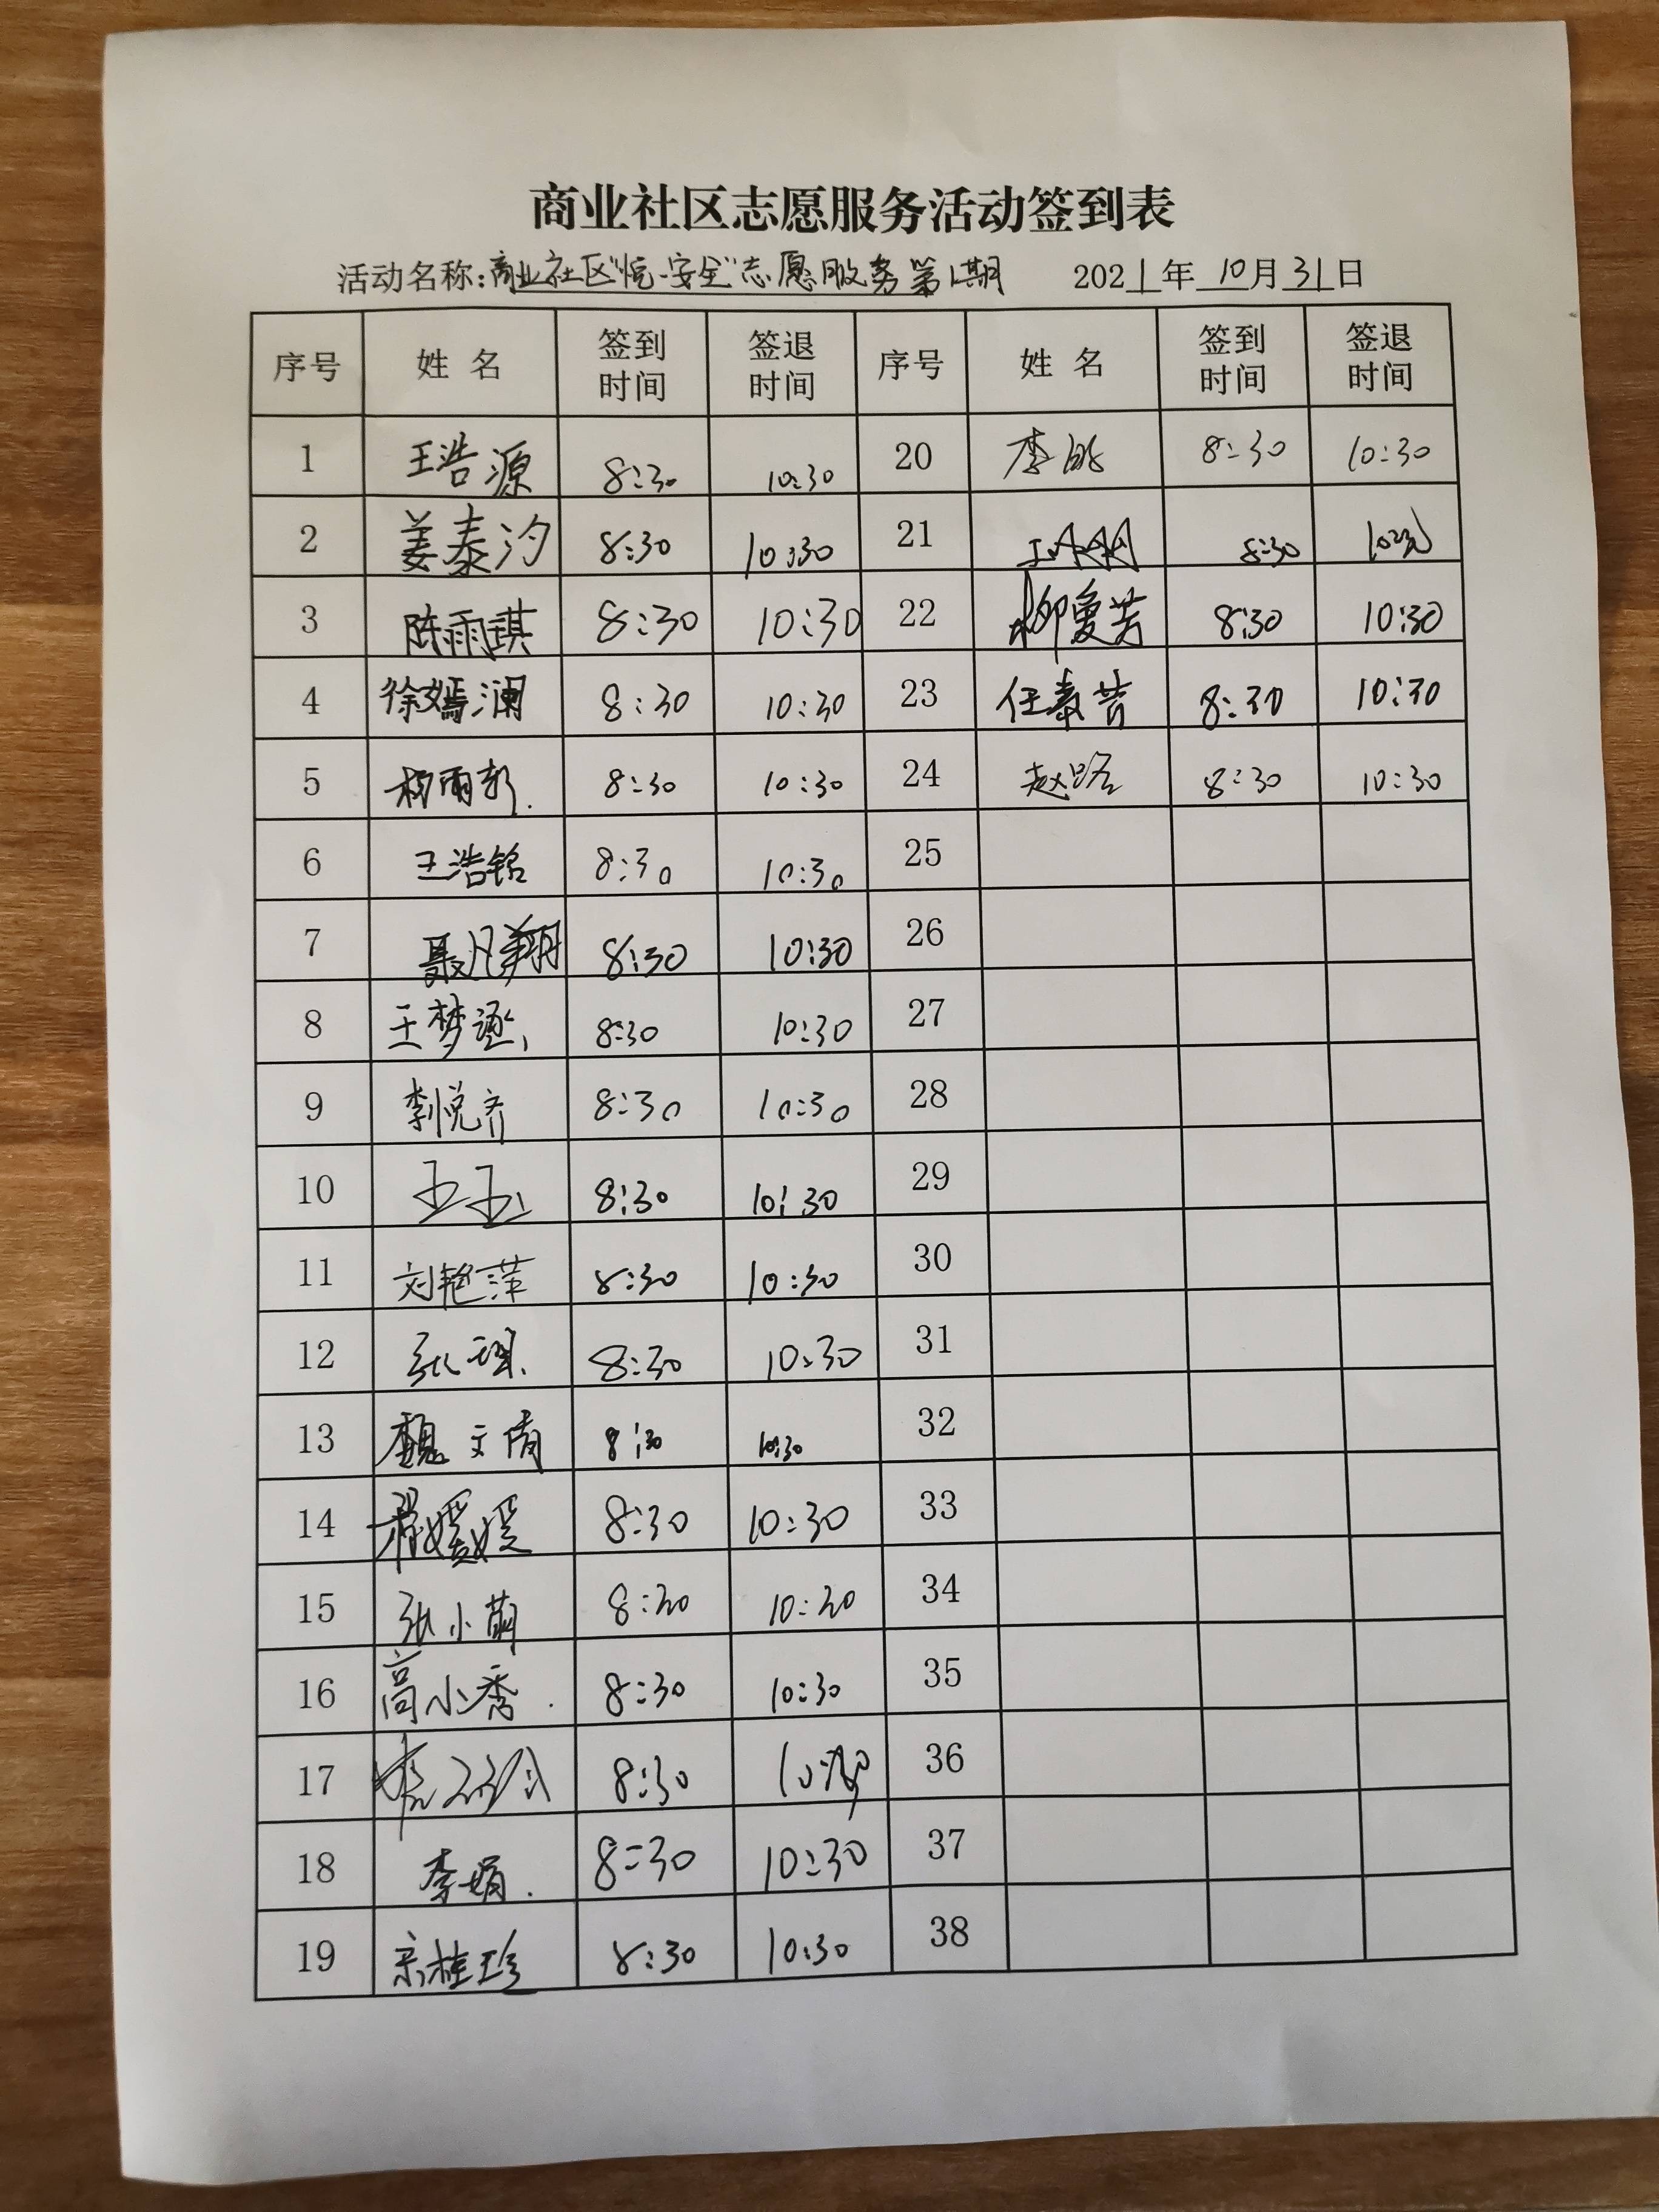 商业社区志愿服务活动签到表
活动名称:商业社区"悦·安全"志愿服务第1期 2021年10月31日
序号 姓名 签到时间 签退时间 序号 姓名 签到时间 签退时间
1 王浩源 8:30 10:30 20 李 8:30 10:30
2 姜泰汐 8:30 10:30 21 8:30 10:30
3 陈雨琪 8:30 10:30 22 柳爱芳 8:30 10:30
4 徐嫣澜 8:30 10:30 23 任素芳 8:30 10:30
5 杨雨彤 8:30 10:30 24 赵路 8:30 10:30
6 王浩铭 8:30 10:30 25
7 聂凡翔 8:30 10:30 26
8 王梦 8:30 10:30 27
9 李悦齐 8:30 10:30 28
10 王玉 8:30 10:30 29
11 刘艳萍 8:30 10:30 30
12 张琨 8:30 10:30 31
13 魏文倩 8:30 10:30 32
14 媛媛 8:30 10:30 33
15 张小萌 8:30 10:30 34
16 高小秀 8:30 10:30 35
17 8:30 10:30 36
18 李娟 8:30 10:30 37
19 宗桂珍 8:30 10:30 38